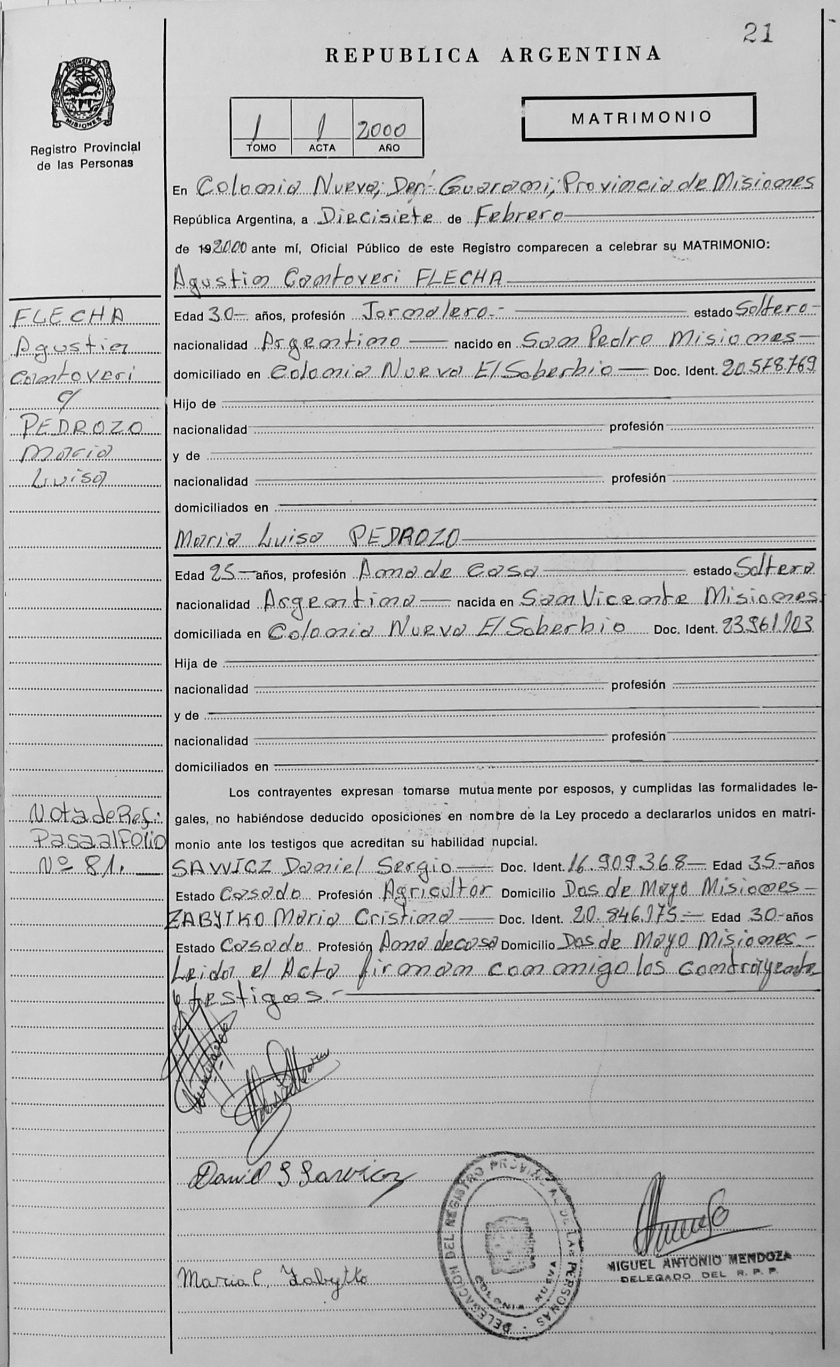 21
REPUBLICA ARGENTINA
PROVINCIA DE MISIONES
Registro Provincial
de las Personas
1 1 2000
TOMO ACTA AÑO
MATRIMONIO
En Colonia Nueva, Dep. Guarani, Provincia de Misiones
República Argentina, a Diecisiete de Febrero
de 192000 ante mí, Oficial Público de este Registro comparecen a celebrar su MATRIMONIO:
Agustin Cantoveri FLECHA
FLECHA
Agustin
Cantoveri
c/
PEDROZO
Maria
Luisa
Edad 30- años, profesión Jornalero.- estado Soltero-
nacionalidad Argentino nacido en San Pedro Misiones-
domiciliado en Colonia Nueva El Soberbio Doc. Ident. 20.578.769
Hijo de
nacionalidad profesión
y de
nacionalidad profesión
domiciliados en
Maria Luisa PEDROZO
Edad 25- años, profesión Ama de Casa estado Soltera
nacionalidad Argentina nacida en San Vicente Misiones
domiciliada en Colonia Nueva El Soberbio Doc. Ident. 23.961.103
Hija de
nacionalidad profesión
y de
nacionalidad profesión
domiciliados en
Los contrayentes expresan tomarse mutuamente por esposos, y cumplidas las formalidades le-
gales, no habiéndose deducido oposiciones en nombre de la Ley procedo a declararlos unidos en matri-
monio ante los testigos que acreditan su habilidad nupcial.
Nota de Ref.:
Pasa al Folio
Nº 81.
SAWICZ Daniel Sergio Doc. Ident. 16.909.368- Edad 35-años
Estado Casado Profesión Agricultor Domicilio Dos de Mayo Misiones-
ZABYTKO Maria Cristina Doc. Ident. 20.846.175- Edad 30-años
Estado Casado Profesión Ama de casa Domicilio Dos de Mayo Misiones.-
Leida el Acta firman conmigo los contrayente
y testigos.-
Maria C. Zabytko
DELEGACION DEL REGISTRO PROVINCIAL DE LAS PERSONAS
COLONIA NUEVA
MIGUEL ANTONIO MENDOZA
DELEGADO DEL R. P. P.